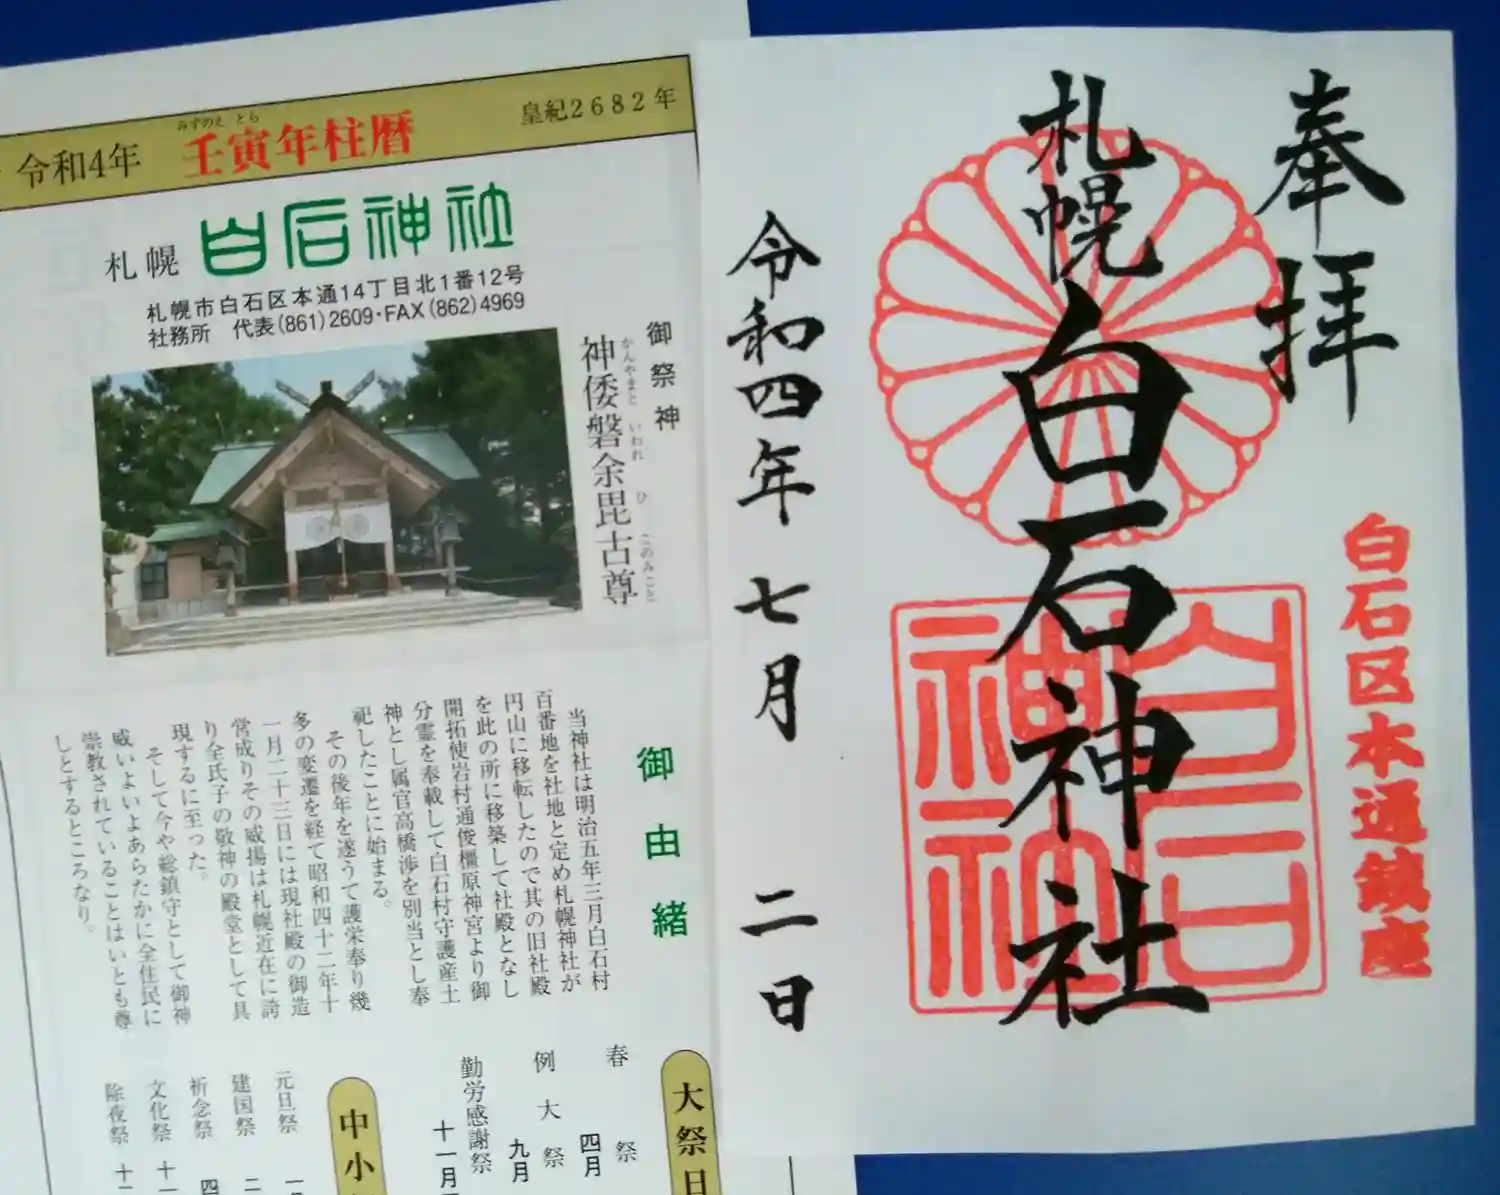 令和4年 壬寅年柱暦 皇紀2682年
みずのえ とら
札幌 白石神社
札幌市白石区本通14丁目北1番12号
社務所 代表(861)2609・FAX(862)4969
御祭神
神倭磐余毘古尊
かんやまと いわれ ひ このみこと
御由緒
当神社は明治五年三月白石村
百番地を社地と定め札幌神社が
円山に移転したので其の旧社殿
を此の所に移築して社殿となし
開拓使岩村通俊橿原神宮より御
分霊を奉載して白石村守護産土
神とし属官高橋渉を別当とし奉
祀したことに始まる。
その後年を遂うて護栄奉り幾
多の変遷を経て昭和四十二年十
一月二十三日には現社殿の御造
営成りその威揚は札幌近在に誇
り全氏子の敬神の殿堂として具
現するに至った。
そして今や総鎮守として御神
威いよいよあらたかに全住民に
崇教されていることはいとも尊
しとするところなり。
大祭日
春祭 四月
例大祭 九月
勤労感謝祭 十一月
中小
元旦祭 一
建国祭 二
祈念祭 四
文化祭 十一
除夜祭 十二
奉拝
札幌 白石神社
令和四年 七月 二日
白石区本通鎮座
白石
神社